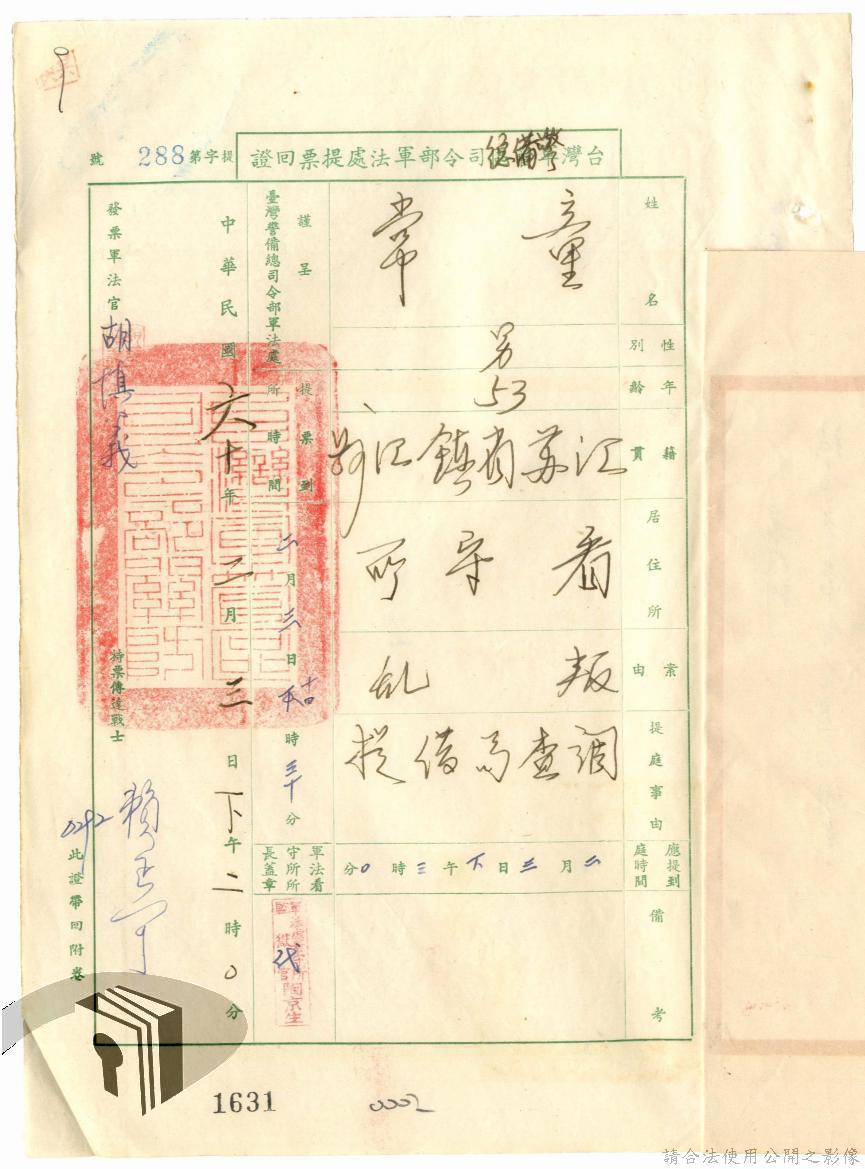 台灣警備總司令部軍法處提票回證
提字第288號
姓名
童常
性別
男
年齡
53
籍貫
江苏省鎮江
居住所
看守所
案由
叛乱
提庭事由
調查
借提
應提到庭時間
二月三日下午三時0分
備考
謹呈
臺灣警備總司令部軍法處
提票到所時間
二月三日
時三十分
軍法看守所所長蓋章
代
陶京生
中華民國六十年二月三日下午二時0分
發票軍法官
胡
持票傳達戰士
賴
0292
此證帶回附卷
1631
0002
請合法使用公開之影像